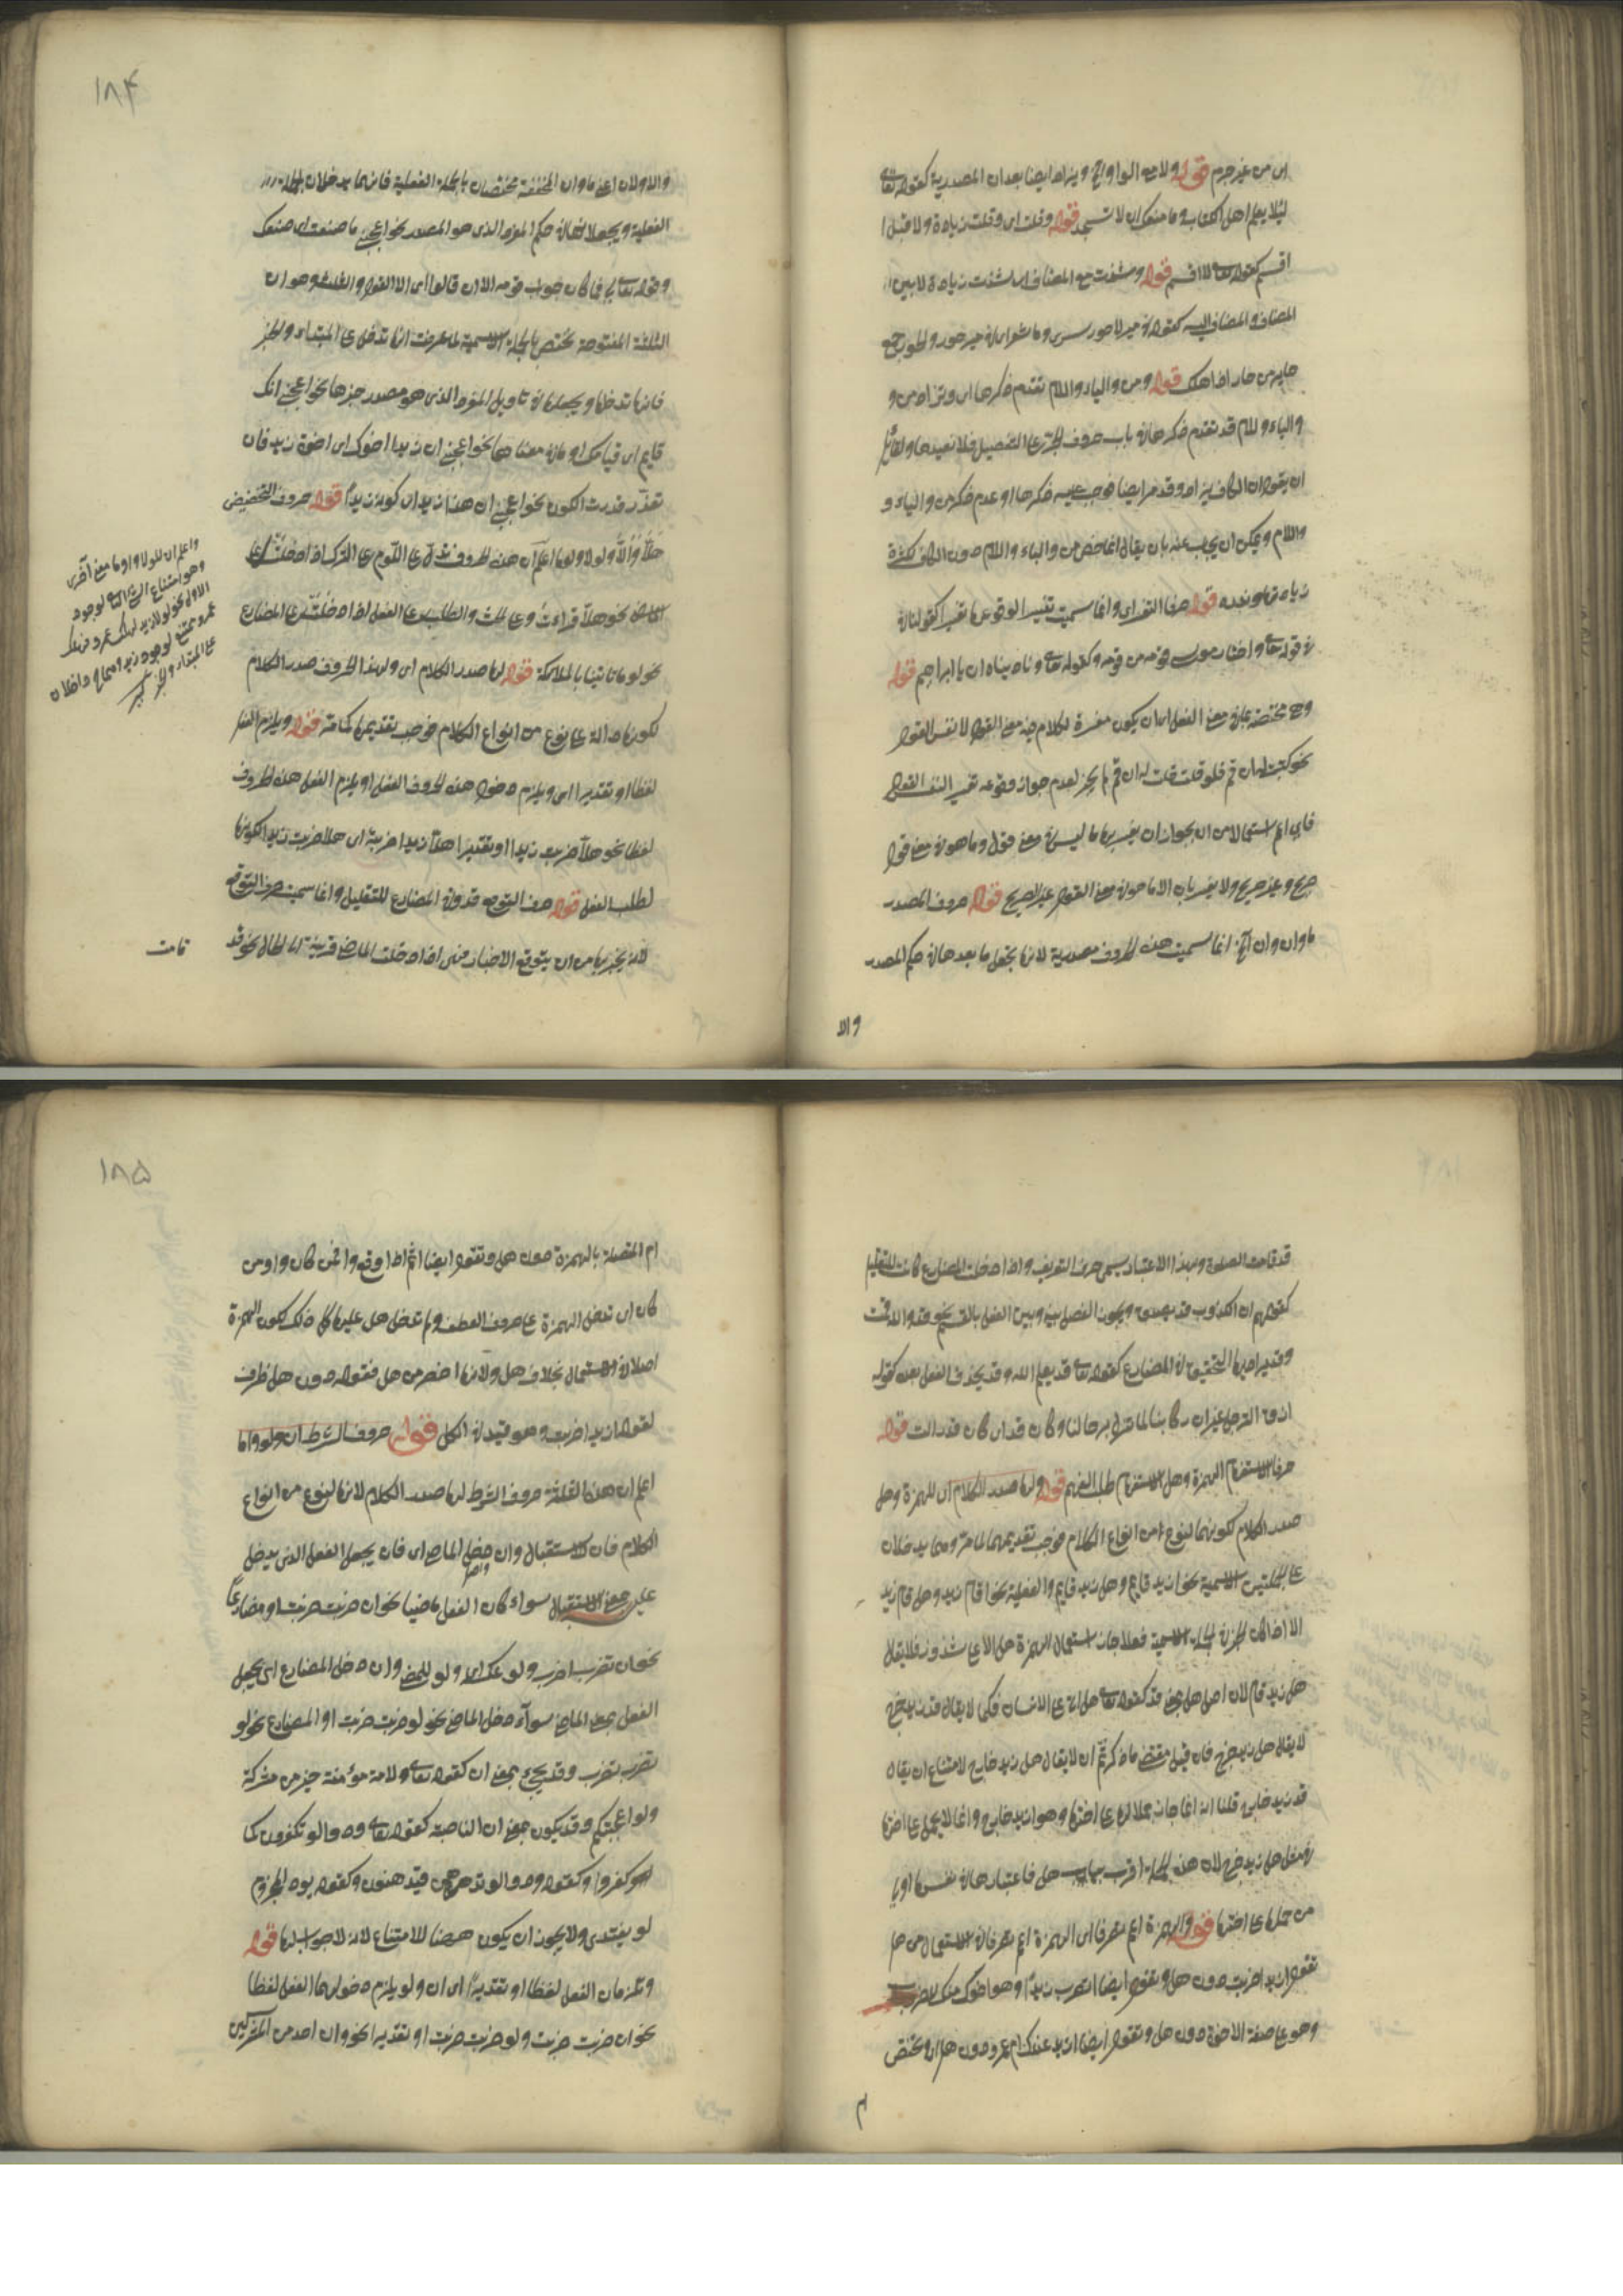 اى من غير جرم قوله ولا مع الواو الخ ويزاد ايضا بعد ان المصدرية كقوله تعالى
لئلا يعلم اهل الكتاب وما منعك ان لا تسجد قوله وقلت اى وقلت زيادة لا قبل ا
اقسم كقوله تعالى لا اقسم قوله وشذت مع المضاف اى شذت زيادة لا بين
المضاف والمضاف اليه كقوله فى بير لا حور سرى وما شعر اى فى بير حور والحور جمع
حاير من حار اذا هلك قوله ومن والباء واللام تقدم ذكرها اى وتزاد من و
والباء واللام قد تقدم ذكرها فى باب حروف الجر على التفصيل فلا نعيدها ولقائل
ان يقول ان الكاف يزاد وقد مر ايضا فوجب عليه ذكرها او عدم ذكر من والباء و
واللام ويمكن ان يجيب عنه بان يقال انما خص من والباء واللام دون الكاف لكثرة
زيادة هذه قوله حرفا التفسير اى وانما سميت
فى قوله تعالى واختار موسى قومه من قومه وكقوله تعالى وناديناه ان يا ابراهيم قوله
وهى مختصة بما فى معنى الفعل اى ان يكون مفسرة لكلام فيه معنى القول لا نفس القول
نحو كتبت اليه ان قم فلو قلت قلت له ان قم لم يجز لعدم جواز وقوعه تفسير
فاى اعم استعمالا من ان لجواز ان يفسر بها ما ليس فى معنى قول وما هو فى معنى قول
صريح وغير صريح ولا يفسر بان الا ما هو فى معنى القول غير الصريح قوله حروف المصدر
ما وان وان الخ انما سميت هذه الحروف مصدرية لانها تجعل ما بعدها فى حكم المصدر
والا
١٨٤
والاولان اعنى ما وان المخففة مختصان بالجملة الفعلية فانهما يدخلان الجملة
الفعلية ويجعلانها فى حكم المفرد الذى هو المصدر نحو اعجبنى ما صنعت اى صنعك
وقوله تعالى فما كان جواب قومه الا ان قالوا اى الا القول والثالث وهو ان
الثقيلة المفتوحة تختص بالجملة الاسمية لما عرفت انها تدخل على المبتداء والخبر
فانها تدخلها ويجعلها فى تاويل المفرد الذى هو مصدر خبرها نحو اعجبنى انك
قايم اى قيامك او ما فى معناها نحو اعجبنى ان زيدا اخوك اى اخوة زيد فان
تعذر قدرت الكون نحو اعجبنى ان هذا زيد اى كونه زيدا قوله حروف التحضيض
هلا والا ولولا ولوما اعلم ان هذه الحروف تدل على اللوم على الترك اذا دخلت على
الماضى نحو هلا قراءت وعلى الحث والطلب على الفعل اذا دخلت على المضارع
نحو لوما تاتينا بالملائكة قوله لها صدر الكلام اى ولهذه الحروف صدر الكلام
لكونها دالة على نوع من انواع الكلام فوجب تقديمها كما مر قوله ويلزم الفعل
لفظا او تقديرا اى ويلزم دخول هذه الحروف الفعل او يلزم الفعل هذه الحروف
لفظا نحو هلا ضربت زيدا او تقديرا هلا زيدا ضربته اى هلا ضربت زيدا لكونها
لطلب الفعل قوله حرف التوقع قد وفى المضارع للتقليل وانما سميت حرف التوقع
لانه يخبر بها من ان يتوقع الاخبار فهى اذا دخلت الماضى قربته الى الحال نحو قد
قامت
واعلم ان للولا ولوما معنى آخر
وهو امتناع الشئ الثانى لوجود
الاول نحو لولا زيد لهلك عمرو فهلاك
عمرو ممتنع لوجود زيد وهما داخلان
على المبتداء والخبر كبير
قد قامت الصلوة وبهذا الاعتبار يسمى حرف التقريب واذا دخلت المضارع كانت للتقليل
كقولهم ان الكذوب قد يصدق ويجوز الفصل بينه وبين الفعل بالقسم نحو قد والله قمت
وقد يراد بها التحقيق فى المضارع كقوله تعالى قد يعلم الله وقد يحذف الفعل بعده كقوله
ازف الترحل غير ان ركابنا لما تزل برحالنا وكان قد اى كان قد زالت قوله
حرفا الاستفهام الهمزة وهل الاستفهام طلب الفهم قوله ولهما صدر الكلام اى للهمزة وهل
صدر الكلام لكونهما لنوع من انواع الكلام فوجب تقديمهما لما مر وهما يدخلان
على الجملتين الاسمية نحو ازيد قايم وهل زيد قايم والفعلية نحو اقام زيد وهل قام زيد
الا اذا كان الخبر فى الجملة الاسمية فعلا جاز استعمال الهمزة دون هل الا على شذوذ فلا يقال
هل زيد قام لان اصل هل بمعنى قد كقوله تعالى هل اتى على الانسان فكما لا يقال قد زيد يخرج
لا يقال هل زيد يخرج فان قيل مقتضى ما ذكرتم ان لا يقال هل زيد خارج لامتناع ان يقال
قد زيد خارج قلنا انه انما جاز حملا لها على اختها وهو ازيد خارج وانما لا يحمل على اختها
فى مثل هل زيد خرج لان هذه الجملة اقرب بهل فاعتبارها فى نفسها اولى
من حملها على اختها قوله والهمزة اعم تصرفا اى الهمزة اعم تصرفا فى الاستعمال من هل
تقول ازيدا ضربت دون هل وتقول ايضا اتضرب زيدا وهو اخوك منكرا للضرب
وهو على صفة الاخوة دون هل وتقول ايضا ازيد عندك ام عمرو دون هل اى وتختص
ام
١٨٥
ام المتصلة بالهمزة دون هل وتقول ايضا اثم اذا ما وقع وافمن كان واومن
كان اى تدخل الهمزة على حروف العطف ولم تدخل هل عليها كل ذلك لكون الهمزة
اصلا فى الاستعمال بخلاف هل ولانها اخصر من هل فقوله دون هل ظرف
لقوله ازيدا ضربت وهو قيد فى الكل قوله حروف الشرط ان ولو واما
اعلم ان هذه الثلثة حروف الشرط لها صدر الكلام لانها لنوع من انواع
الكلام فان للاستقبال وان دخل الماضى اى فان يجعل الفعل الذى يدخل
عليه بمعنى الاستقبال سواء كان الفعل ماضيا نحو ان ضربت ضربت او مضارعا
نحو ان تضرب اضرب ولو عكسه اى ولو للمضى وان دخل المضارع اى يجعل
الفعل بمعنى الماضى سوآء دخل الماضى نحو لو ضربت ضربت او المضارع نحو لو
تضرب تضرب وقد يجئ بمعنى ان كقوله تعالى ولامة مؤمنة خير من مشركة
ولو اعجبتكم وقد يكون بمعنى ان الناصبة كقوله تعالى ودوا لو تكفرون كما
كفروا وكقوله ودوا لو تدهن فيدهنون وكقوله يود المجرم
لو يفتدى ولا يجوز ان يكون ههنا للامتناع لانه لا جواب لها قوله
وتلزمان الفعل لفظا او تقديرا اى ان ولو يلزم دخولهما الفعل لفظا
نحو ان ضربت ضربت ولو ضربت ضربت او تقديرا نحو وان احد من المشركين